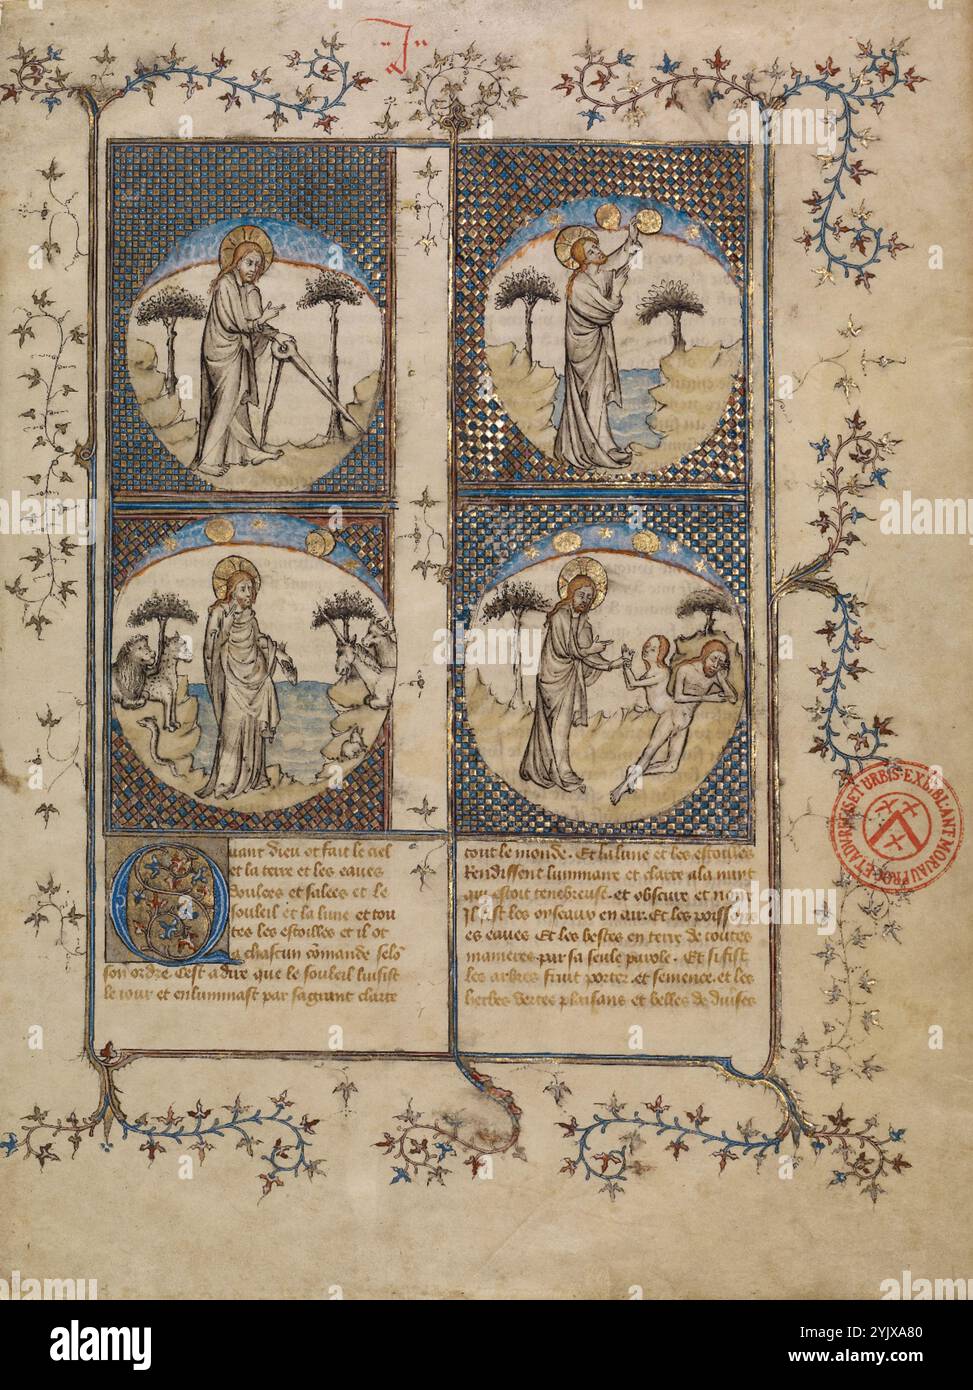 J
Quant dieu ot fait le ciel
et la terre et les eaues
doulces et salees et le
souleil et la lune et tou
tes les estoilles et il ot
a chascun comande selo
son ordre. Cest a dire que le souleil luisist
le iour et enluminast par sa grant clarte
tout le monde. Et la lune et les estoilles
Rendissent lumiere et clarte a la nuit
qui estoit tenebreuse. et obscure et noire
Il fist les oyseaux en air. Et les poissons
es eaues Et les bestes en terre de toutes
manieres par sa seule parole. Et si fist
les arbres fruit porter. et semence. et les
herbes vertes plaisans et belles de diuerses
alamy
alamy
Image ID: 2YJXA80
www.alamy.com